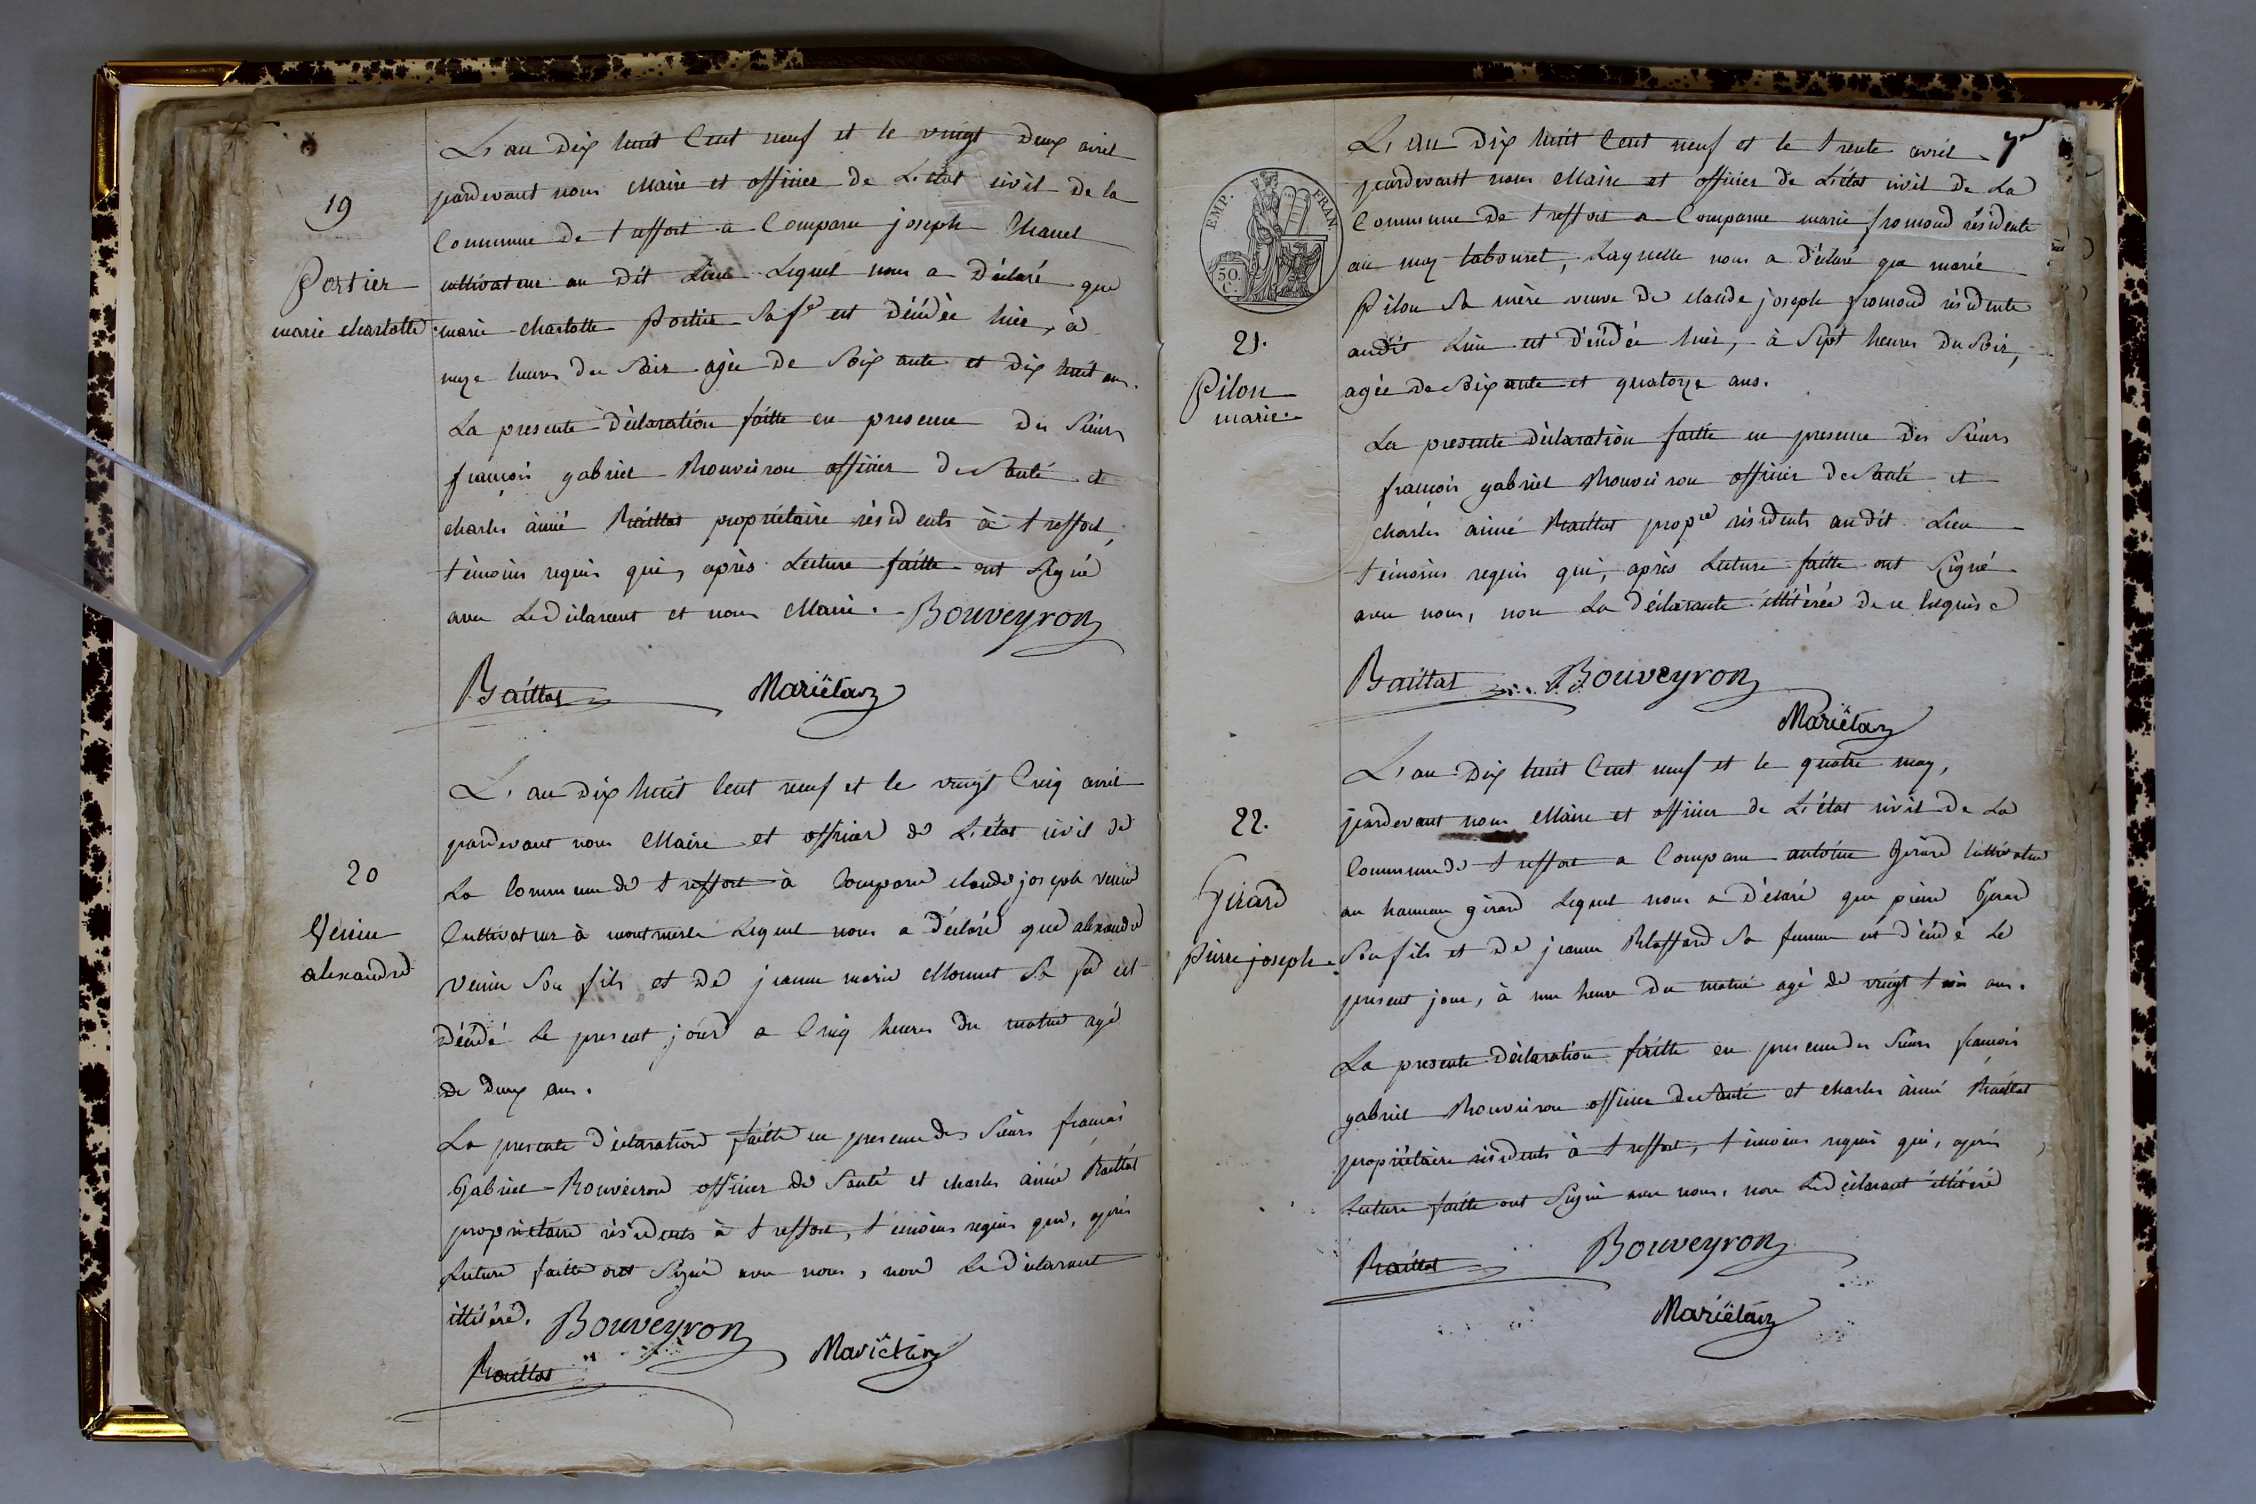 19
Portier
marie charlotte
L'an dix huit Cent neuf et le vingt deux avril
pardevant nous Maire et officier de L'état civil de la
Commune de treffort a Comparu joseph
cultivateur au dit Lieu Lequel nous a déclaré que
marie charlotte Portier Sa fe est décédée hier, à
onze heures du Soir agée de Soixante et dix huit ans.
La presente déclaration faitte en presence des Sieurs
françois gabriel Bouveiron officier de Santé et
charles aimé Baillat propriétaire résidents à treffort,
témoins requis qui, après Lecture faitte ont Signé
avec Le déclarant et nous Maire. Bouveyron
Baillat Mariëtan
20
Venin
alexandre
L'an dix huit Cent neuf et le vingt Cinq avril
pardevant nous Maire et officier de L'état civil de
La Commune de treffort à Comparu claude joseph venin
Cultivateur à montmerle Lequel nous a déclaré que alexandre
venin Son fils et de jeanne marie Monnet Sa fe est
décédé Le present jour a Cinq heures du matin agé
de deux ans.
La presente déclaration faitte en presence des Sieurs françois
Gabriel Bouveiron officier de Santé et charles aimé Baillat
propriétaire résidents à treffort, témoins requis qui, après
Lecture faitte ont Signé avec nous, non Le déclarant
illitéré. Bouveyron
Baillat Mariëtan
EMP. FRAN
50.
C.
21.
Pilon
marie.
L'an dix huit Cent neuf et le trente avril
pardevant nous Maire et officier de L'état civil de La
Commune de treffort a Comparue marie fromond résidente
au may tabouret, Laquelle nous a déclaré que marie
Pilon Sa mère veuve de claude joseph fromond résidente
audit Lieu est décédée hier, à Sept heures du Soir,
agée de Soixante et quatorze ans.
La presente déclaration faitte en presence des Sieurs
françois gabriel Bouveiron officier de Santé et
charles aimé Baillat propre résidents audit Lieu
témoins requis qui, après Lecture faitte ont Signé
avec nous, non La déclarante illitérée de ce Enquise
Baillat Bouveyron
Mariëtan
22.
Girard
Pierre joseph.
L'an dix huit Cent neuf et le quatre may,
pardevant nous Maire et officier de L'état civil de La
Commune de treffort a Comparu antoine Girard Cultivateur
au hameau girard Lequel nous a déclaré que pierre Girard
Son fils et de jeanne Sa femme est décédé Le
present jour, à une heure du matin agé de vingt trois ans.
La presente déclaration faitte en presence des Sieurs françois
gabriel Bouveiron officier de Santé et charles aimé Baillat
propriétaire résidents à treffort, témoins requis qui, après
Lecture faitte ont Signé avec nous, non Le déclarant illitéré
Baillat Bouveyron
Mariëtan